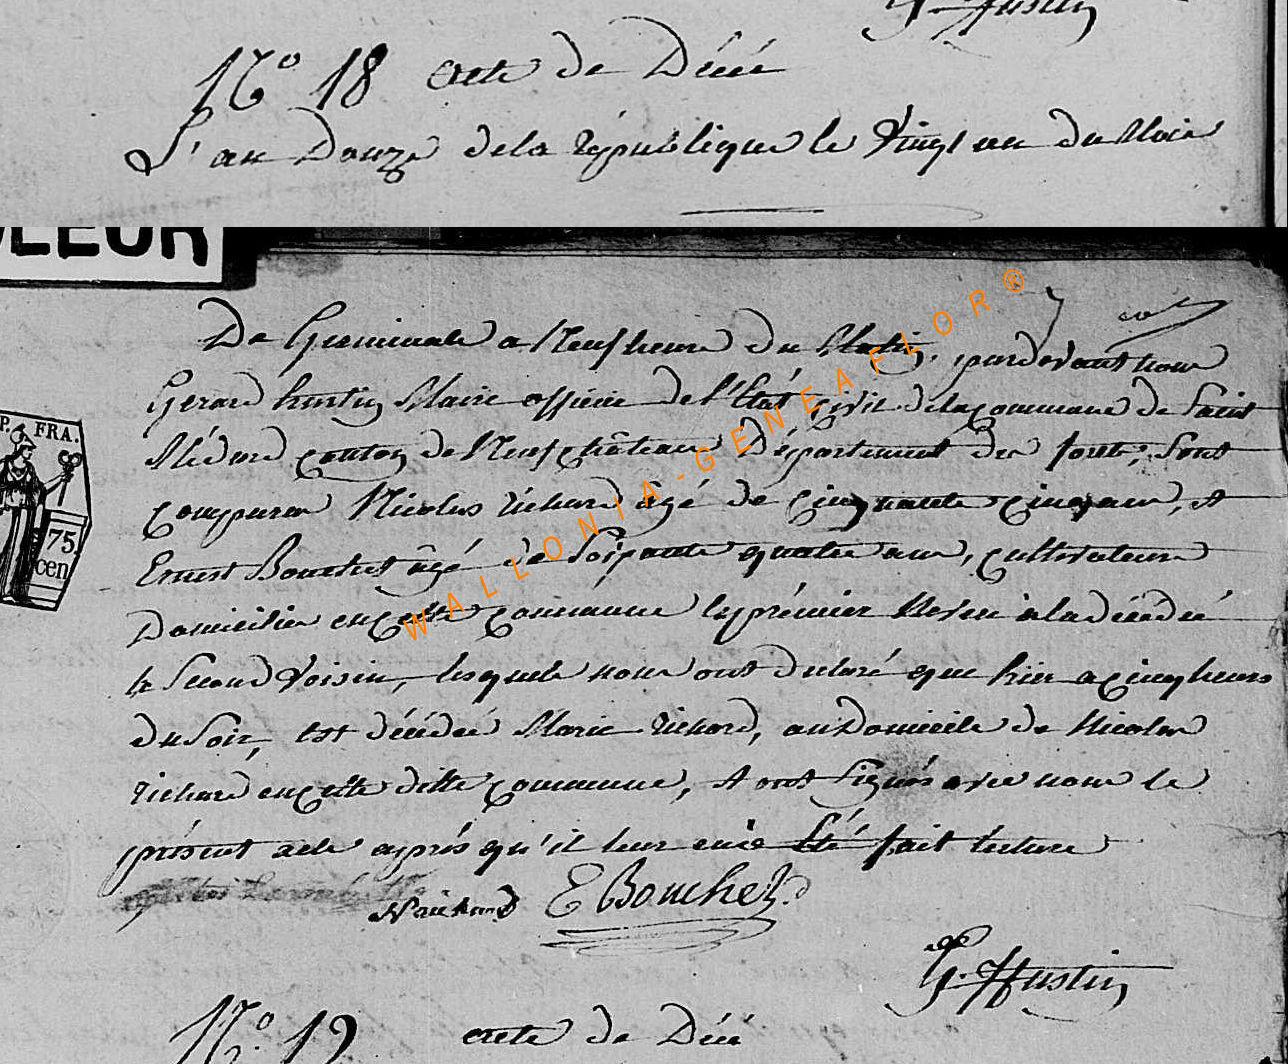 G. Hustin
N.° 18 acte de Décé
L'an Douze de la république le vingt un du Mois
LEUR
De Germinale a Neuf heure du Matin, pardevant nous
Gerard hustin Maire officier de l'État civil de la commune de Saint
Médard canton de Neufchâteau Département des forêts, Sont
comparu Nicolas richard âgé de cinquante cinq ans, et
Ernest Bouchet âgé de Soixante quatre ans, cultivateurs
Domicilier en cette commune le prémier Neveu à la décédée
le Second Voisin, lesquels nous ont declaré que hier a cinq heures
du Soir, est décédée Marie richard, au Domicile de Nicolas
richard en cette ditte commune, et ont Signés avec nous le
présent acte aprés qu'il leur en a Été fait lecture
N richard E Bouchez
G. Hustin
N.° 19 acte de Décé
P. FRA.
75
cen
WALLONIA-GENEAFLOR®